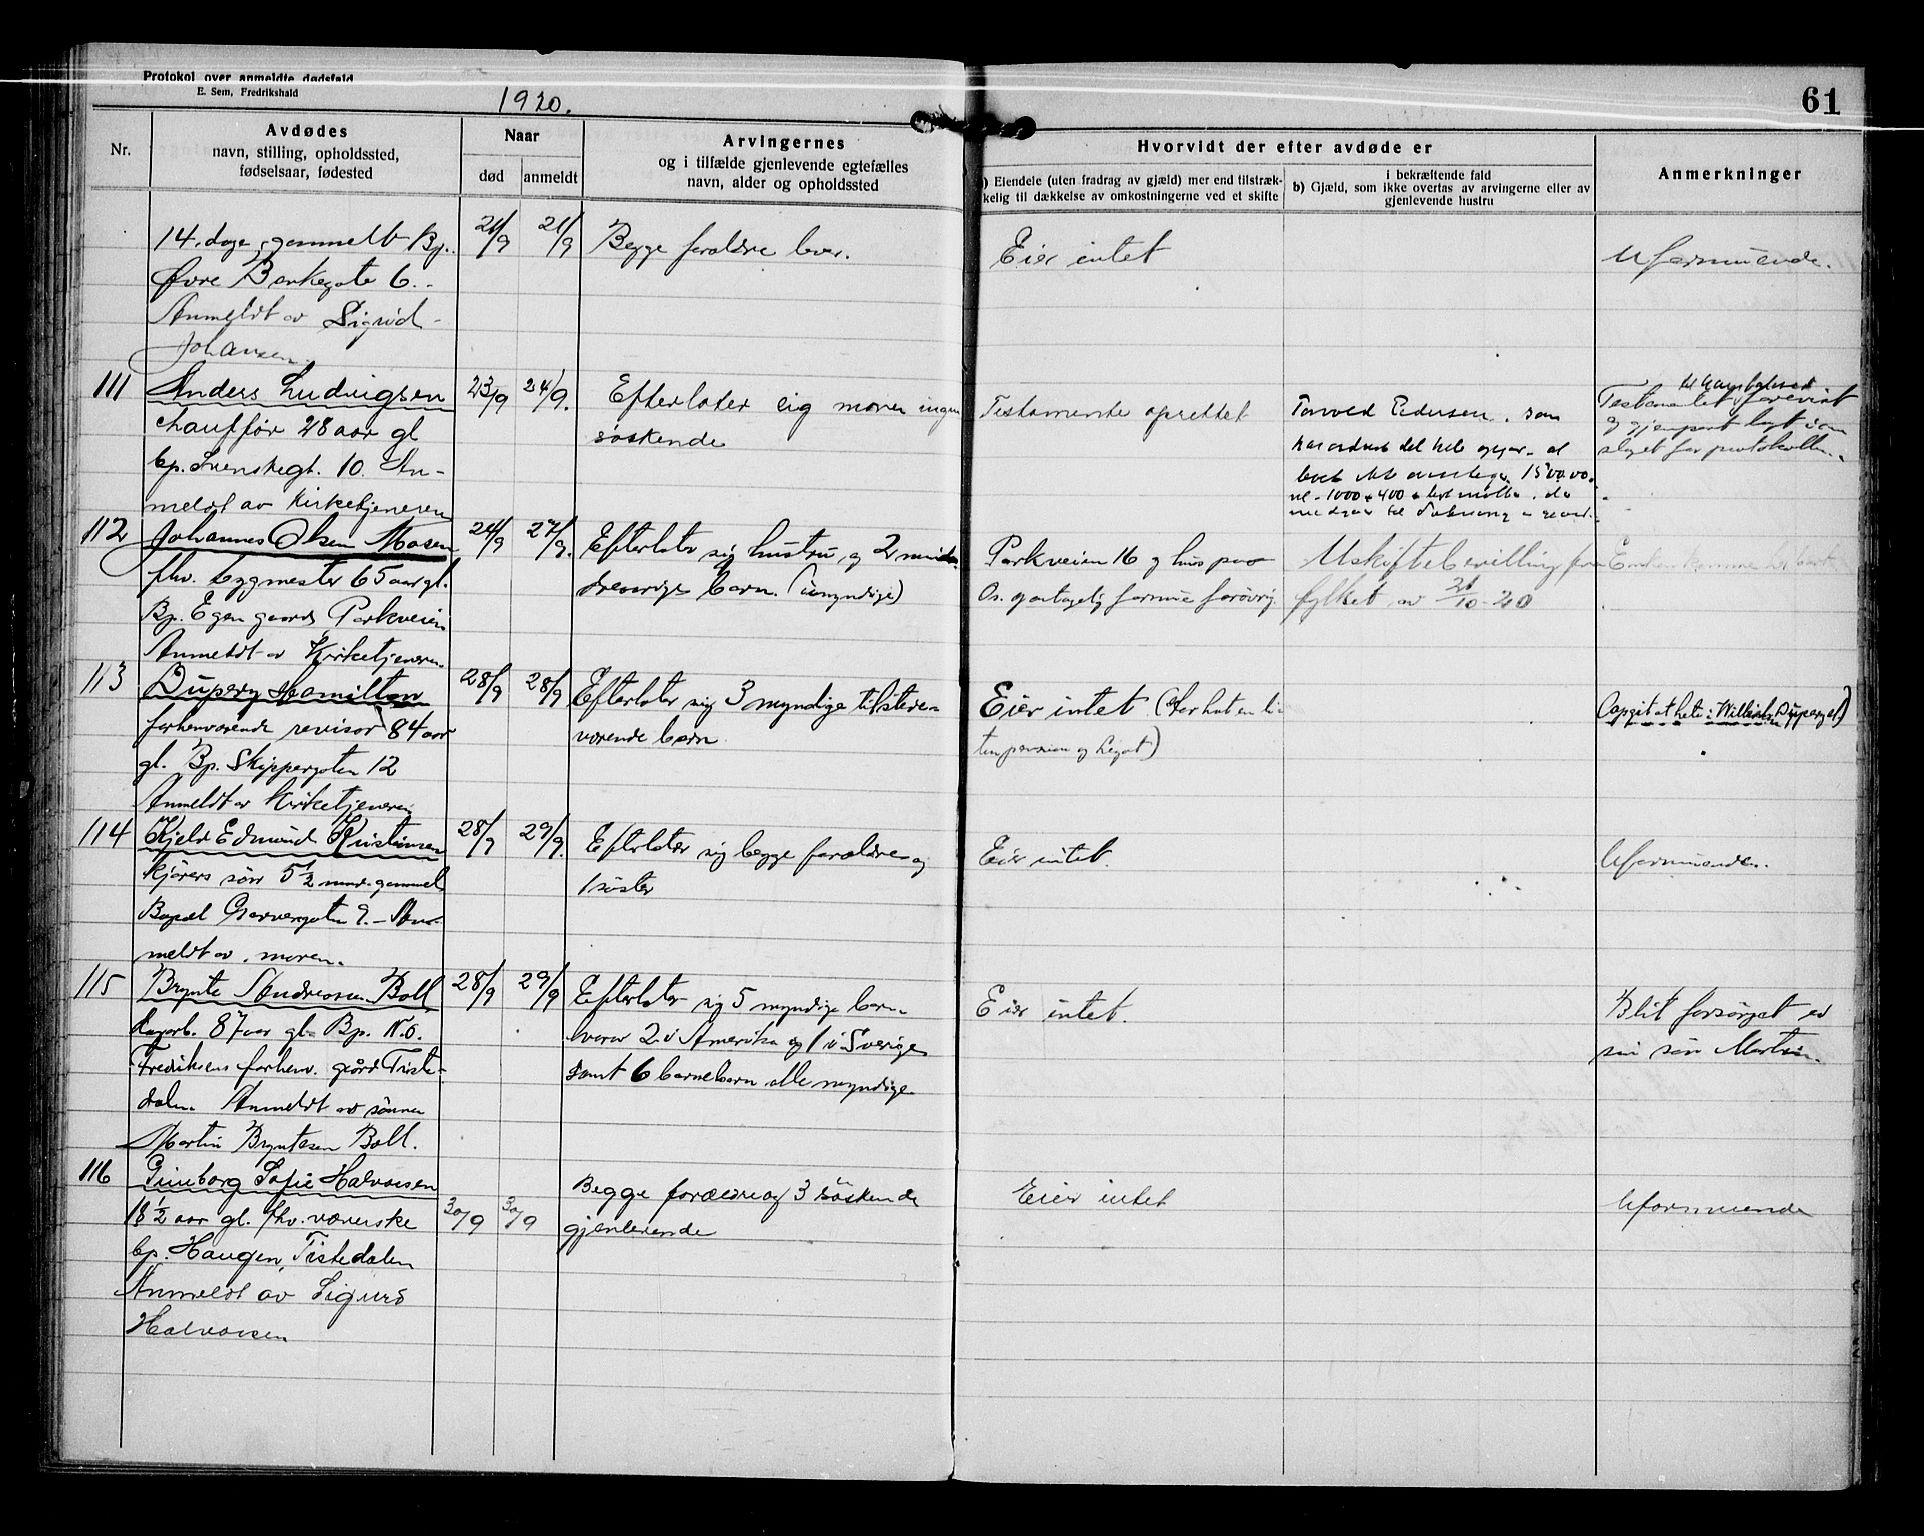 Protokol over anmeldte dødsfald
E. Sem, Fredrikshald
1920.
61
Nr.
Avdødes
navn, stilling, opholdssted,
fødselsaar, fødested
Naar
død
anmeldt
Arvingernes
og i tilfælde gjenlevende egtefælles
navn, alder og opholdssted
Hvorvidt der efter avdøde er
a) Eiendele (uten fradrag av gjæld) mer end tilstræk-
kelig til dækkelse av omkostningerne ved et skifte
i bekræftende fald
b) Gjæld, som ikke overtas av arvingerne eller av
gjenlevende hustru
Anmerkninger
14. dage gammelt Bp.
Øvre Bankegate 6.
Anmeldt av Sigrid
Johansen.
21/9
21/9
Begge foraldre lever.
Eier intet
Uformuende.
111
Anders Ludvigsen
chauffør 28 aar gl
bp. Svenskegt. 10. An-
meldt av Kirketjeneren
23/9
24/9.
Efterlater sig moren ingen
søskende
Testamente oprettet
Torvald Pedersen. som
har ordnet det hele
15000.00
1000 + 400
Testamentet forevist
og gjenpart lagt i om
slaget for protokollen.
112
Johannes Olsen Mosen
fhv. bygmester 65 aar gl.
Bp. Egen gaard Parkveien
Anmeldt av Kirketjeneren
24/9
27/9.
Efterlater sig hustru og 2 mind-
dreaarige barn. (umyndige)
Parkveien 16 g hus paa
Os. antagelig formue forøvrig.
Uskiftebevilling fra
fylket av 21/10-20
113
Dupery Hamilton
forhenværende revisor 84 aar
gl. Bp. Skippergaten 12
Anmeldt av Kirketjeneren
28/9
28/9
Efterlater sig 3 myndige tilstede-
værende barn
Eier intet (har hat en li-
ten pension og Legat)
Opgit at hete:
114
Kjeld Edmund Kristiansen
kjørers søn 5½ mnd. gammel
Bopæl Garvergaten 9. - An-
meldt av moren.
28/9
29/9.
Efterlater sig begge forældre og
1 søster
Eier intet.
Uformuende.
115
Brynte Andreasen Boll
dagarb. 87 aar gl. Bp. N.o.
Fredriksens forhenv. gård Tiste-
dalen Anmeldt av sønnen
Martin Bryntesen Boll.
28/9
29/9
Efterlater sig 5 myndige barn
hvorav 2 i Amerika og 1 i Sverige
samt 6 barnebarn alle myndige
Eier intet.
Blit forsørget av
sin søn Martin.
116
Gunborg Sofie Halvorsen
18 ½ aar gl. fhv. væverske
bp. Haugen, Tistedalen
Anmeldt av Sigurd
Halvorsen
30/9
30/9
Begge forældre og 3 søskende
gjenlevende
Eier intet
Uformuende